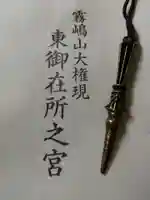 霧嶋山大権現
東御在所之宮